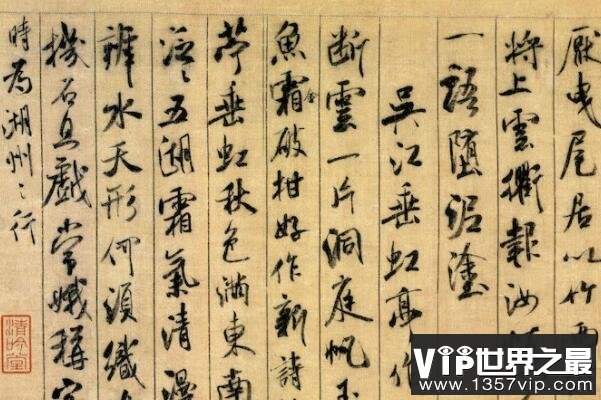 厭曳尾居以竹兩
將上雲衢報汝
一語墮泥塗
吳江垂虹亭作
断雲一片洞庭帆玉
魚霜金破柑好作新詩
苧垂虹秋色滿東南
泛〻五湖霜氣清漫
辨水天形何須織
機石且戲常娥稱
時為湖州〻行
清吟堂
VIP世界之最
www.1357vip.com